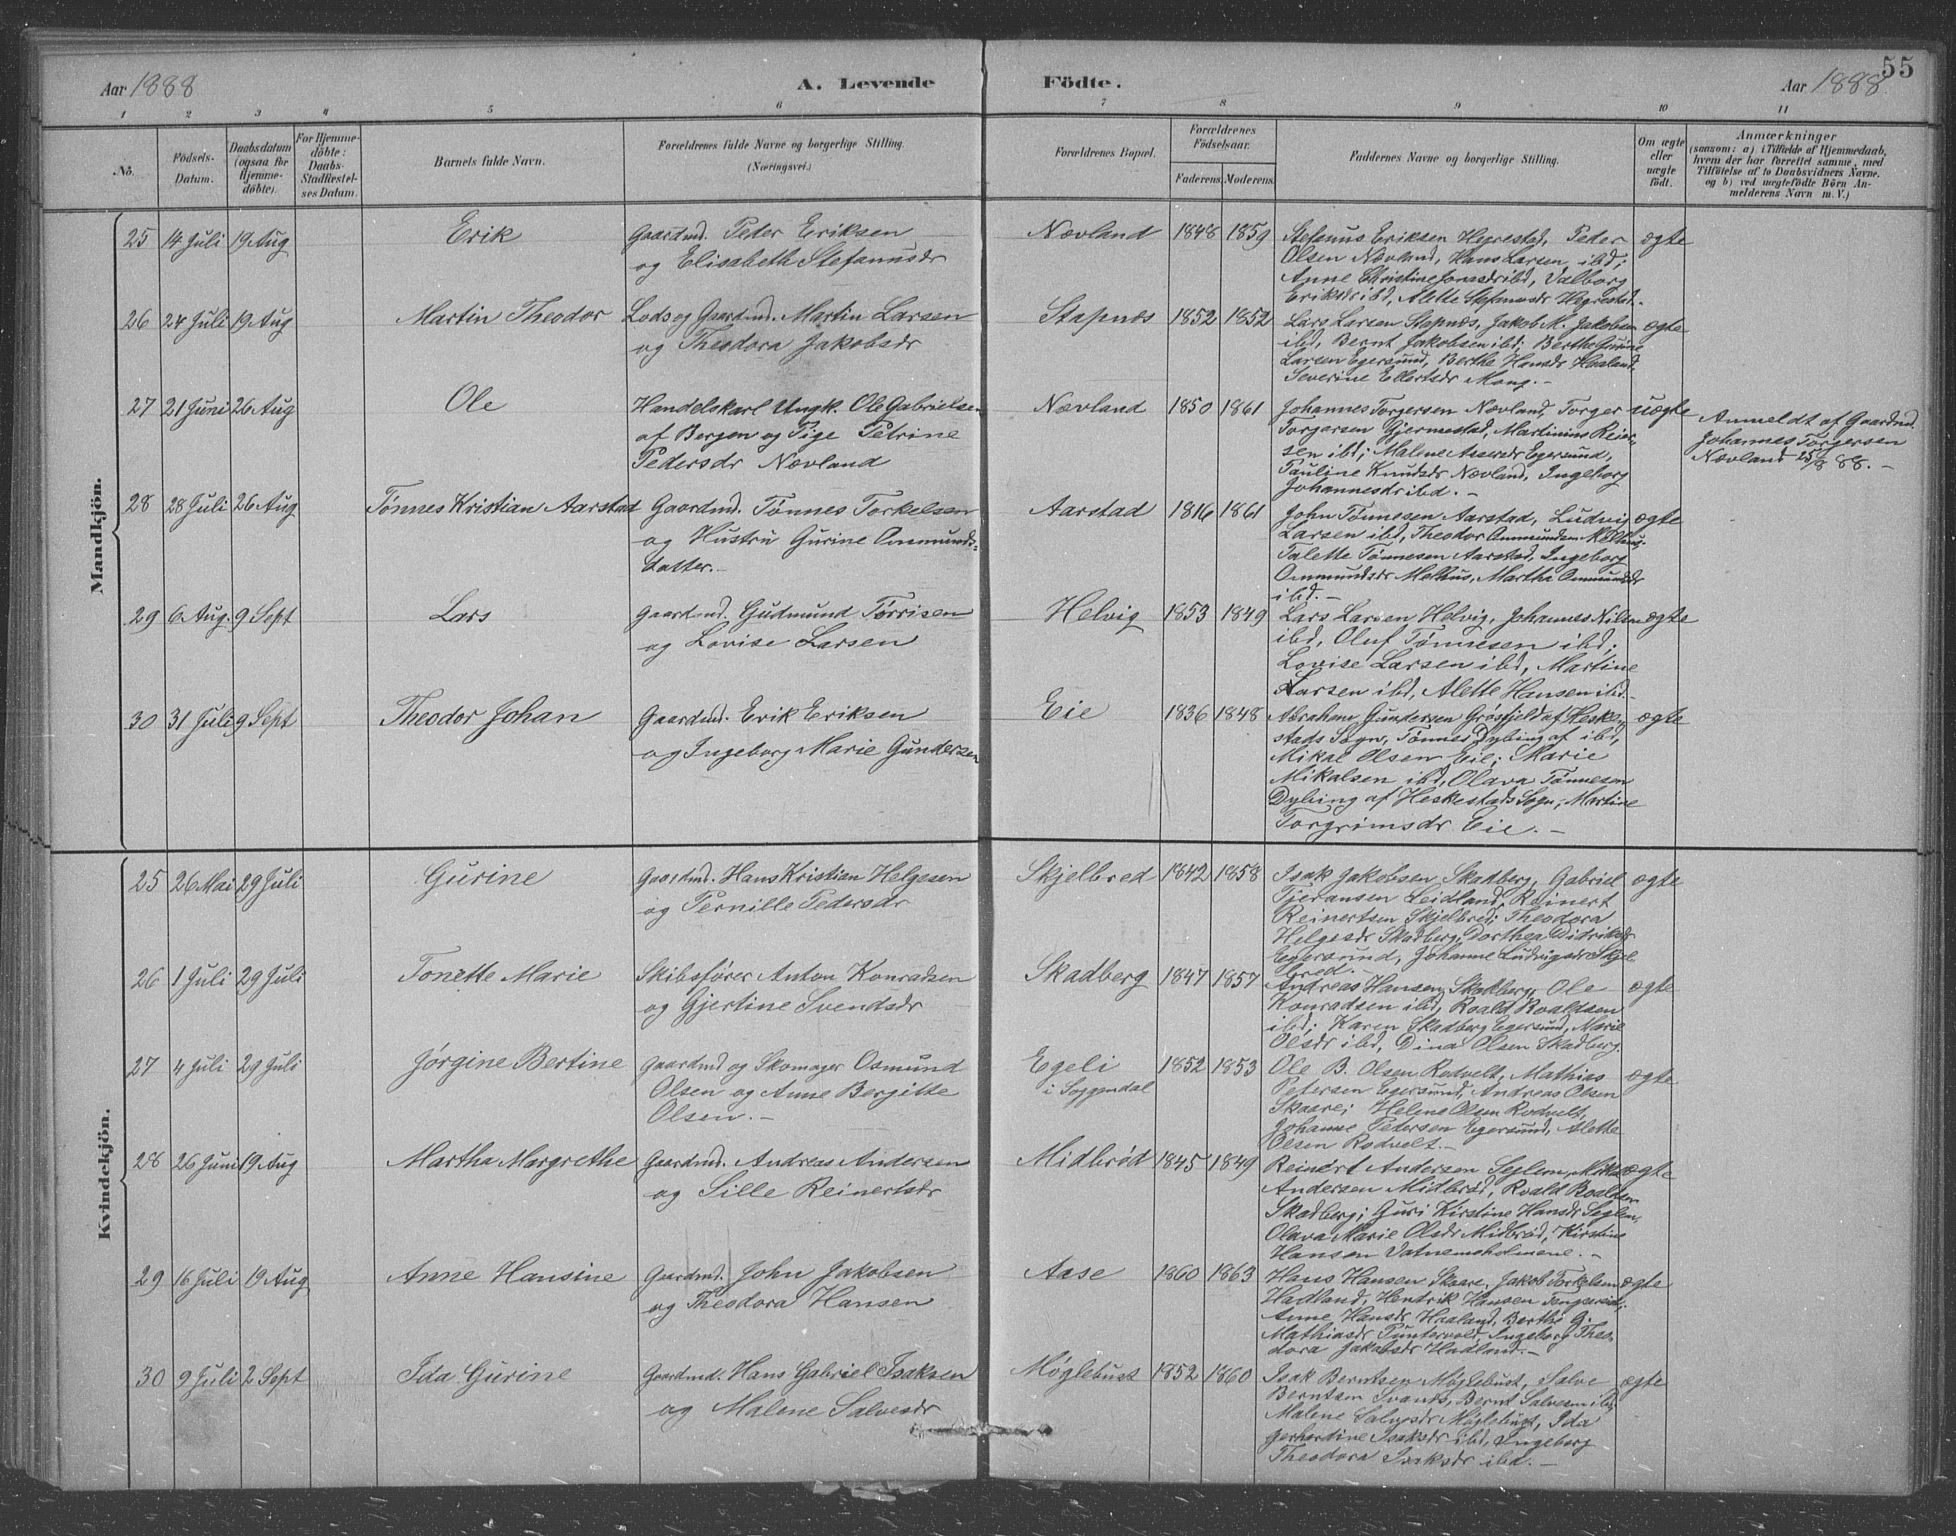 55
Aar 1888
A. Levende Födte.
Aar 1888.
1 2 3 4 5 6 7 8 9 10 11
No.
Födsels-Datum.
Daabsdatum (ogsaa for Hjemme-döbte).
For Hjemme-döbte: Daabs-Stadfæstel-ses Datum.
Barnets fulde Navn.
Forældrenes fulde Navne og borgerlige Stilling.
(Næringsvei.)
Forældrenes Bopæl.
Forældrenes Födselsaar.
Faderens. Moderens.
Faddernes Navne og borgerlige Stilling.
Om ægte eller uægte födt.
Anmærkninger
(saasom: a) i Tilfælde af Hjemmedaab, hvem der har forrettet samme, med Tilföielse af to Daabsvidners Navne, og b) ved uægtefödte Börn Anmelderens Navn m. V.)
Mandkjön.
25 14 Juli 19 Aug Erik
Gaardmd. Peder Eriksen
og Elisabeth Stefanusdr
Nævland 1848 1859
Stefanus Eriksen Hegrestad, Peder
Olsen Nævland, Hans Larsen ibd;
Anne Christine Jonasdr ibd, Valborg
Eriksdr ibd, Alette Stefanusdr Hegrestad.
ægte
26 24 Juli 19 Aug Martin Theodor
Lods og Gaardmd. Martin Larsen
og Theodora Jakobsdr
Stapnæs 1852 1852
Lars Larsen Stapnæs, Jakob M. Jakobsen
ibd, Bernt Jakobsen ibd; Berthe Gurine
Larsen Egersund, Berthe Hansdr Haaland,
Severine Ellertsdr Mong.-
ægte
27 21 Juni 26 Aug Ole
Handelskarl Ungk. Ole Gabrielsen
af Bergen og Pige Petrine
Pedersdr Nævland
Nævland 1850 1861
Johannes Torgersen Nævland, Torger
Torgersen Gjermestad, Martinius Reier-
sen ibd; Malene Egersund,
Pauline Knudsdr Nævland, Ingeborg
Johannesdr ibd.-
uægte
Anmeldt af Gaardmd.
Johannes Torgersen
Nævland 25/8 88.-
28 28 Juli 26 Aug Tønnes Kristian Aarstad
Gaardmd. Tønnes Torkelsen
og Hustru Gurine Ommunds-
datter.-
Aarstad 1816 1861
John Tønnesen Aarstad, Ludvig
Larsen ibd, Theodor Ommundsen Melhus;
Talette Tønnesen Aarstad, Ingeborg
Ommundsdr Melhus, Martha Ommundsdr
ibd.-
ægte
29 6 Aug. 9 Sept Lars
Gaardmd. Gudmund Tørrisen
og Lovise Larsen
Helvig 1853 1849
Lars Larsen Helvig, Johannes Nilsen
ibd, Oluf Tønnesen ibd;
Lovise Larsen ibd, Martine
Larsen ibd, Alette Hansen ibd.
ægte
30 31 Juli 9 Sept Theodor Johan
Gaardmd. Erik Eriksen
og Ingeborg Marie Gundersen
Eie 1836 1848
Abraham Gundersen Grøsfjeld af Heske-
stads Sogn, Tønnes Dybing af ibd,
Mikal Olsen Eie; Marie
Mikalsen ibd, Olava Tønnesen
Dybing af Heskestads Sogn, Martine
Torgrimsdr Eie.-
ægte
Kvindekjön.
25 26 Mai 29 Juli Gurine
Gaardmd. Hans Kristian Helgesen
og Pernille Pedersdr
Skjelbred 1842 1858
Isak Jakobsen Skadberg, Gabriel
Tjeransen Leidland, Reinert
Reinertsen Skjelbred; Theodora
Helgesdr Skadberg, Dorthea Didriksdr
Egersund, Johanne Ludvigsdr Skjel
bred.-
ægte
26 1 Juli 29 Juli Tonette Marie
Skibsfører Anton Konradsen
og Gjertine Svendsdr
Skadberg 1847 1857
Andreas Hansen Skadberg, Ole
Konradsen ibd, Roald Roaldsen
ibd; Karen Skadberg Egersund, Marie
Olsdr ibd, Dina Olsen Skadberg.
ægte
27 4 Juli 29 Juli Jørgine Bertine
Gaardmd og Skomager Osmund
Olsen og Anne Bergitte
Olsen.-
Egeli
i Soggendal
1852 1853
Ole B. Olsen Rodvelt, Mathias
Petersen Egersund, Andreas Olsen
Skaare; Helene Olsen Rodvelt,
Johanne Pedersen Egersund, Alette
Olsen Rodvelt.-
ægte
28 26 Juni 19 Aug Martha Margrethe
Gaardmd. Andreas Andersen
og Sille Reinertsdr
Midbrød 1845 1849
Reinert Andersen Seglem, Mikal
Andersen Midbrød, Roald Roaldsen
Skadberg; Guri Kirstine Hansdr Seglem,
Olava Marie Olsdr Midbrød, Kirstine
Hansen Vatnemsholmene.-
ægte
29 16 Juli 19 Aug Anne Hansine
Gaardmd. John Jakobsen
og Theodora Hansen
Aase 1860 1863
Hans Hansen Skaare, Jakob Torkelsen
Hadland, Hendrik Hansen
Anne Hansdr Haaland, Berthe G.
Mathiasdr Puntervold, Ingeborg Theo
dora Jakobsdr Hadland.-
ægte
30 9 Juli 2 Sept Ida Gurine
Gaardmd. Hans Gabriel Isaksen
og Malene Salvesdr
Møglebust 1852 1860
Isak Berntsen Møglebust, Salve
Berntsen Svanes, Bernt Salvesen ibd;
Malene Salvesdr Møglebust, Ida
Gerhardine Isaksdr ibd, Ingeborg
Theodora Isaksdr ibd.-
ægte